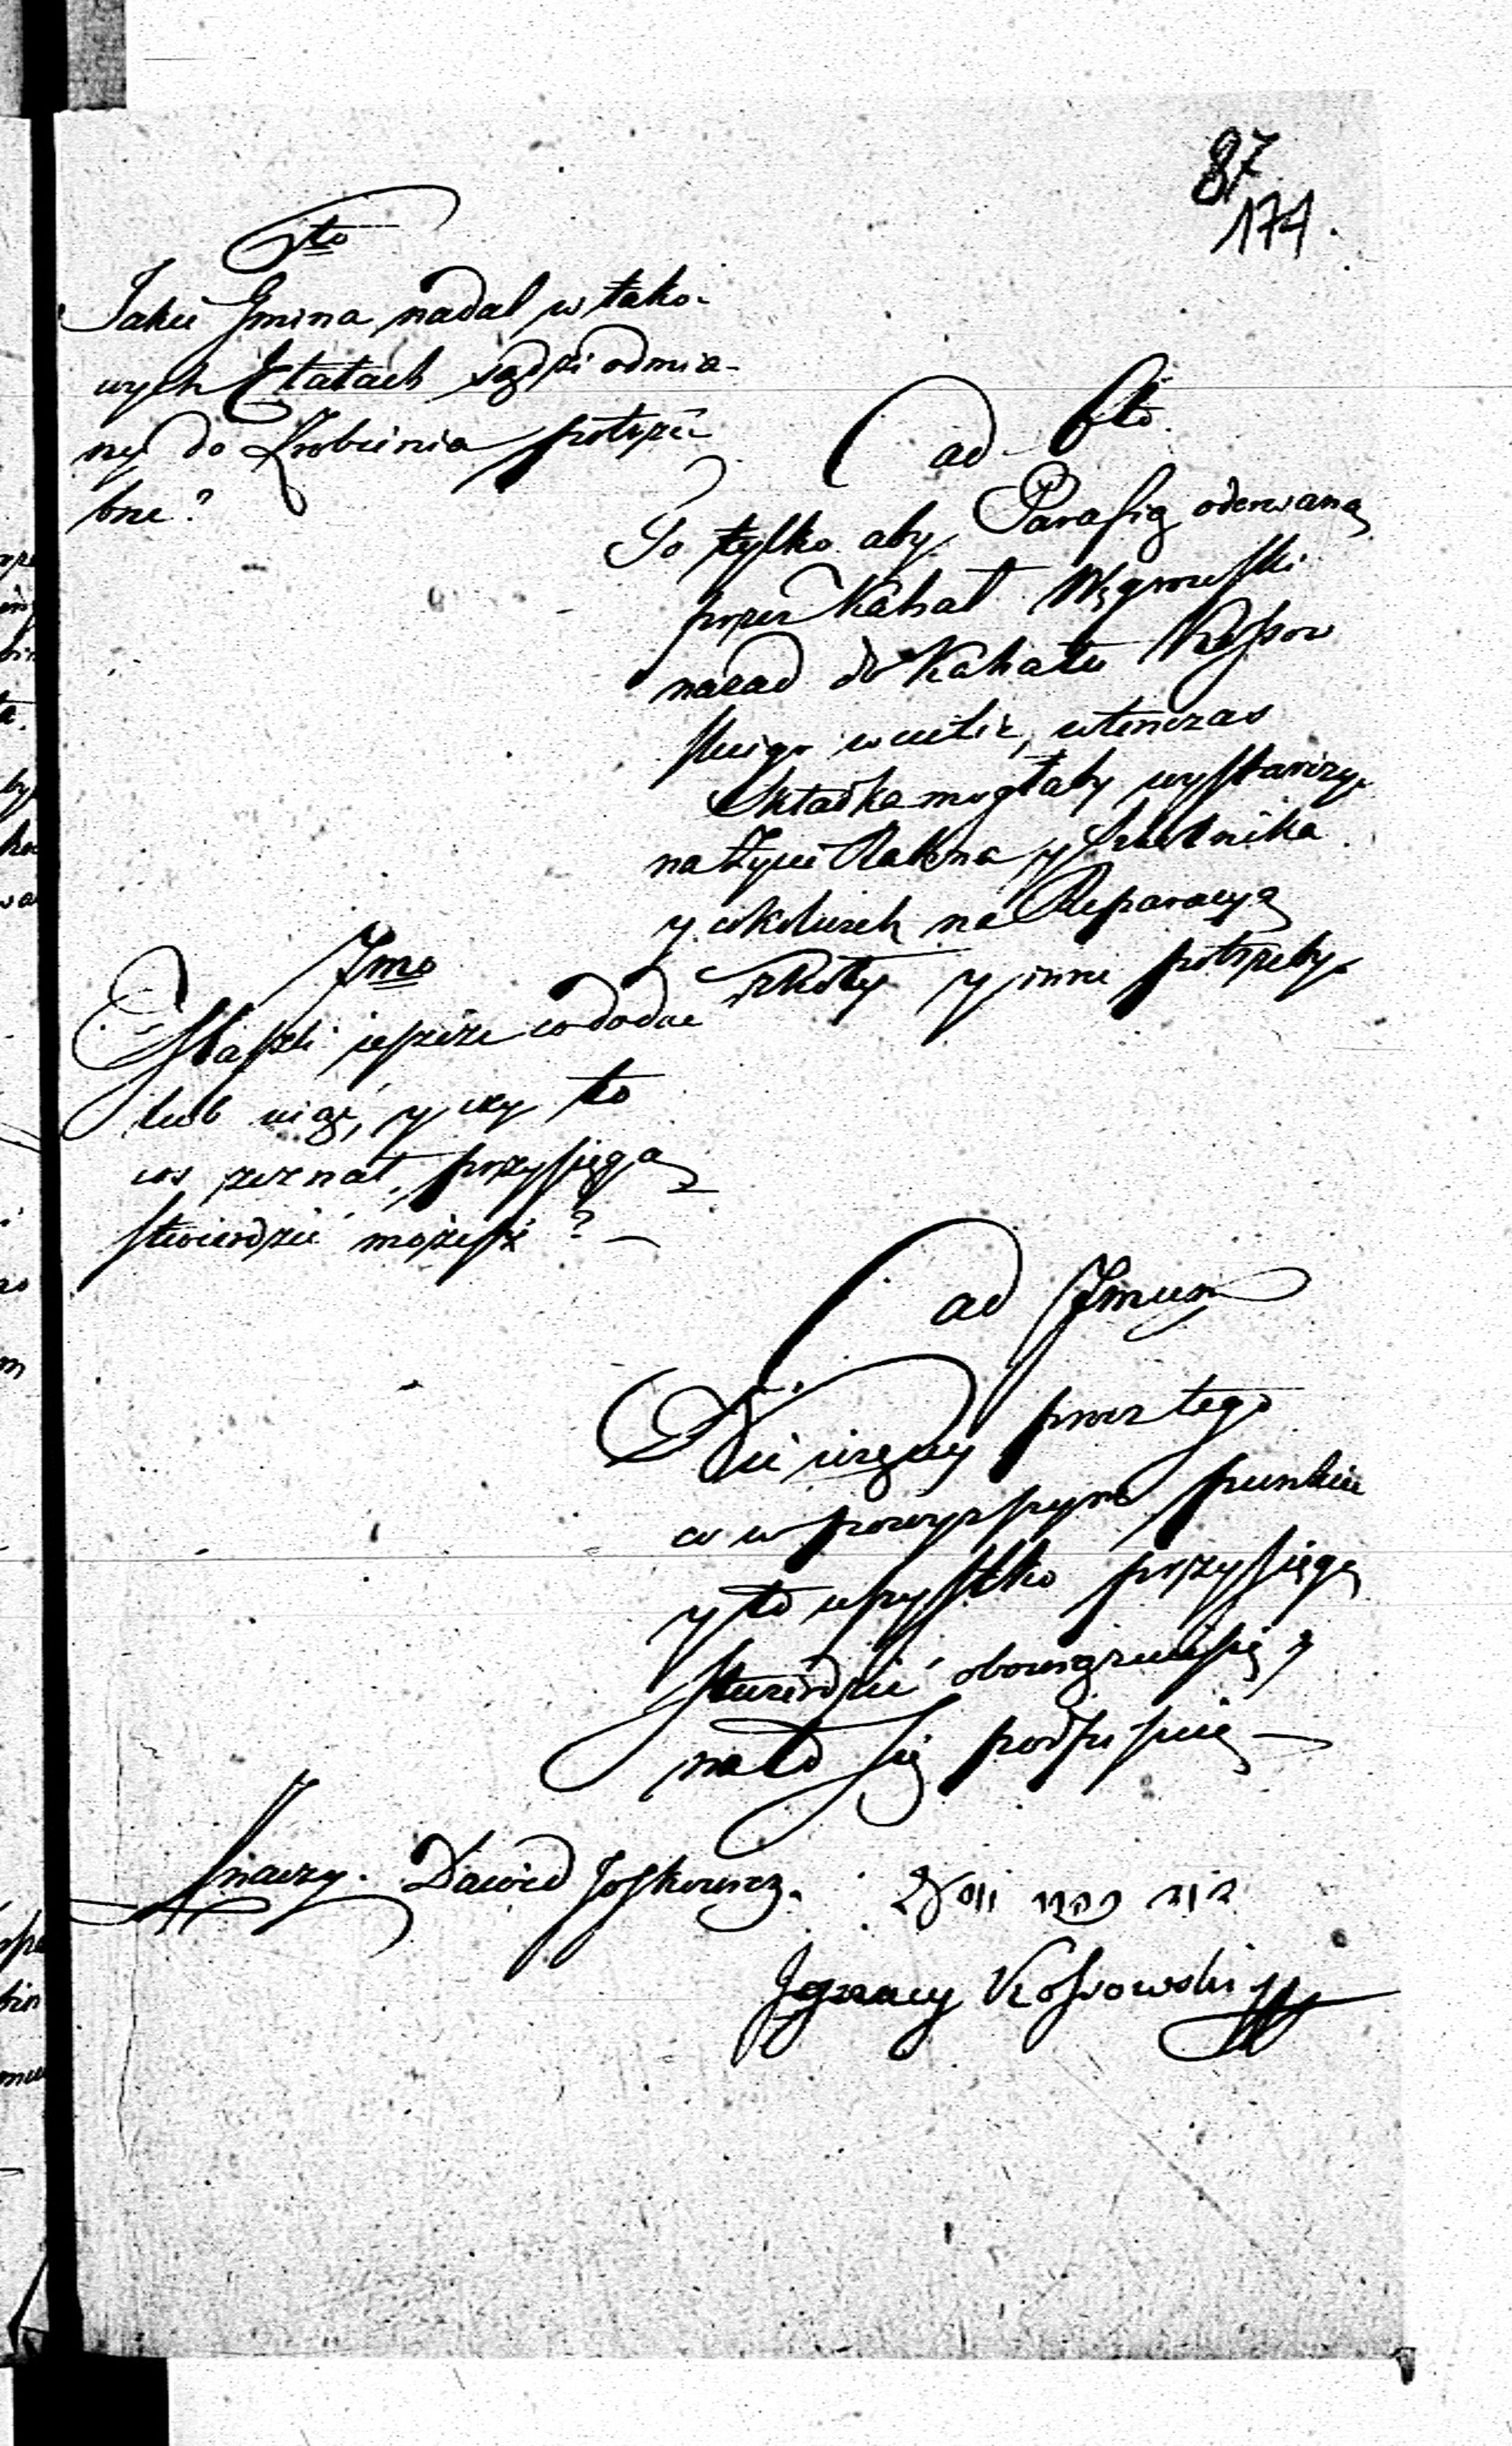 87
174.
6to
Jakie Gmina nadal w tako-
wych Etatach sądzi odmia-
ny do Zrobienia potrze
bne?
ad 6to.
To tylko aby Parafią oderwaną
przez Kahał Węgrowski
nazad do Kahału Kossow
skiego wcielić, wtenczas
Składka mogłaby wystarczyć
na Życie Rabina y Szkolnika
y cokolwiek na Reparacyą
szkoły y inne potrzeby.
7mo
Maszli jeszcze co dodać
lub ująć, y czy to
coś zeznał, przysięgą
stwierdzić możesz? —
ad 7mum
Nic więcey prócz tego
co w powyższym punkcie
y to wszystko przysięgą
stwierdzić obowiązuię się y
na to się podpisuię —
Znaczy. Dawid Joskowicz.
Ignacy Kossowski